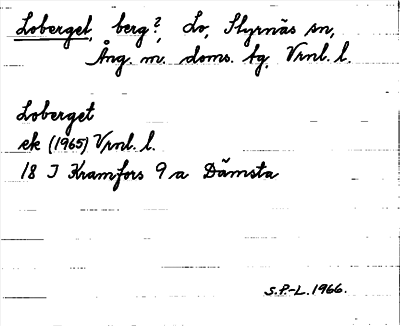 Loberget, berg?, Lo, Styrnäs sn,
Ång. m. doms. tg, Vrnl. l.
Loberget
ek (1965) Vrnl. l.
18 J Kramfors 9 a Dämsta
S.P.-L. 1966.